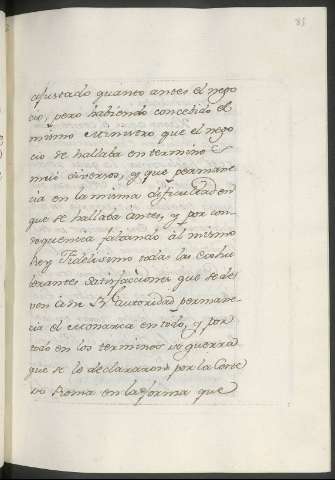 85
ajustado quanto antes el nego
cio, pero habiendo concebido el
mismo Ministro que el nego
cio se hallaba en terminos
mui diversos, y que permane
cia en la misma dificultad en
que se hallaba antes, y por con
sequencia faltando al mismo
Rey Fidelisimo todas las Exhu
berantes satisfacciones que se de
ven a su Rl. autoridad permane
cia el Monarca en todo, y por
todo en los terminos de guerra
que se le declararon por la Corte
de Roma en la forma que